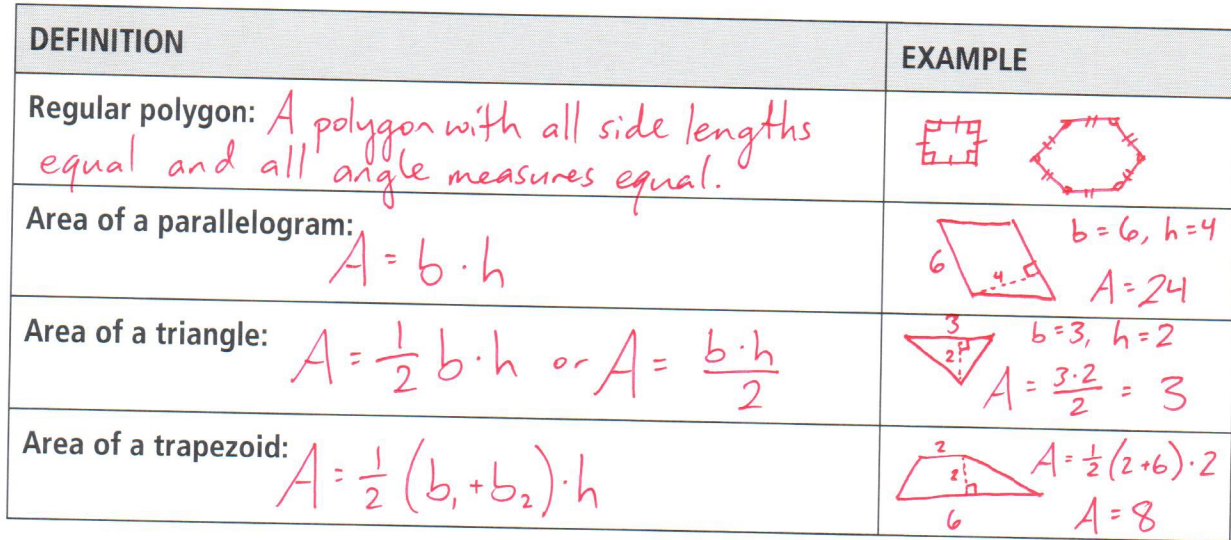 DEFINITION
EXAMPLE
Regular polygon: A polygon with all side lengths
equal and all angle measures equal.
Area of a parallelogram:
A = b · h
6
4
b = 6, h = 4
A = 24
Area of a triangle:
A = 1/2 b · h or A = b · h / 2
3
2
b = 3, h = 2
A = 3 · 2 / 2 = 3
Area of a trapezoid:
A = 1/2 (b₁ + b₂) · h
2
2
6
A = 1/2 (2 + 6) · 2
A = 8